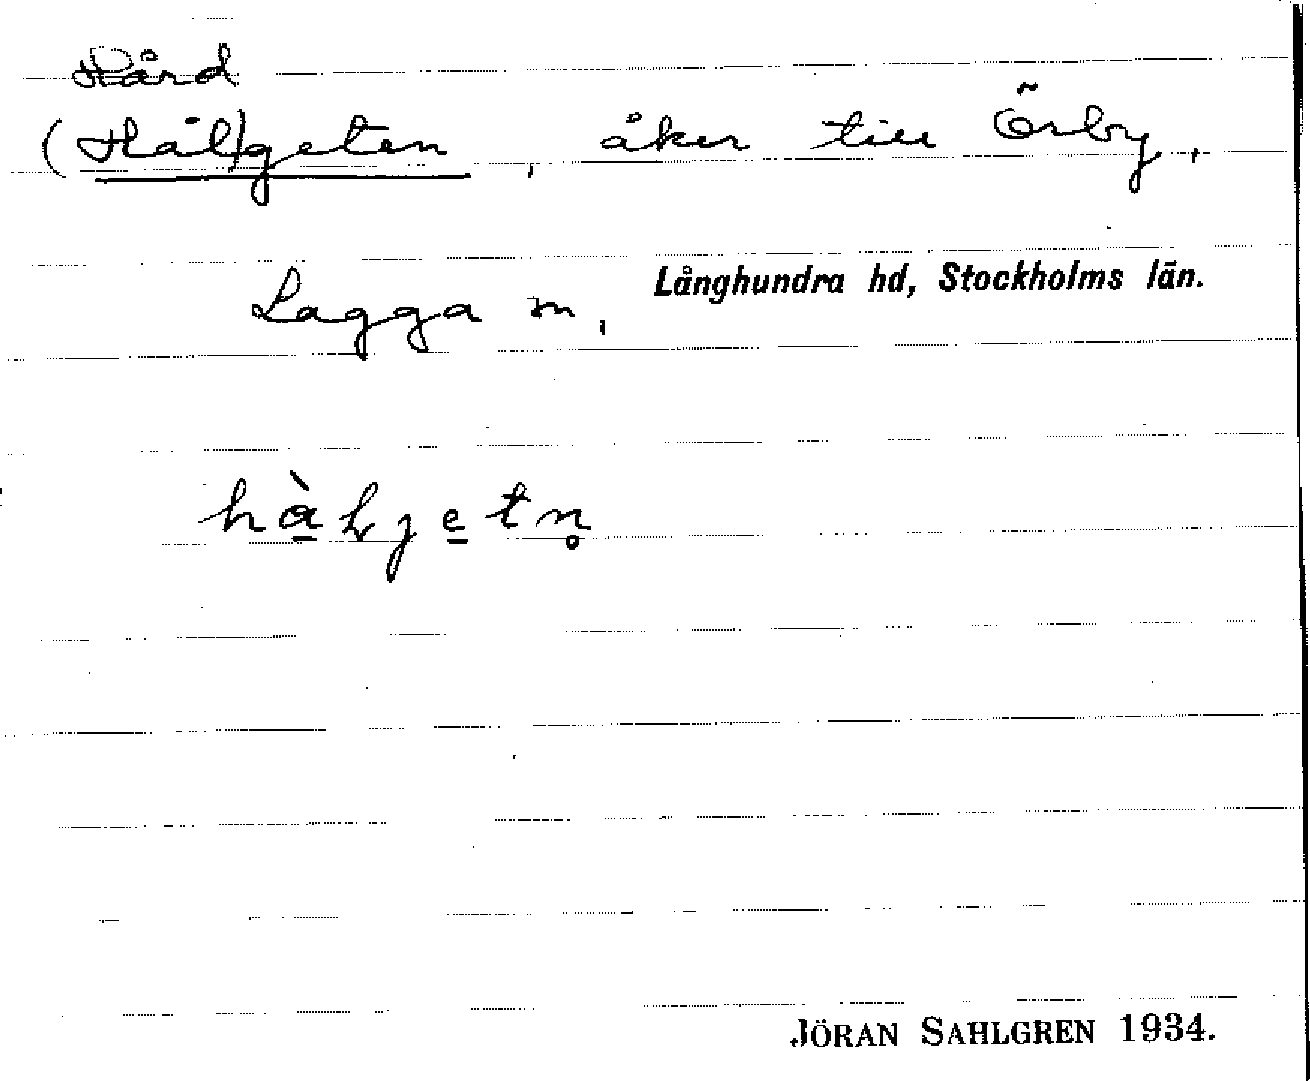 Hård
(Hål)geten, åker till Örby,
Lagga sn, Långhundra hd, Stockholms län.
hàļjetn̥
JÖRAN SAHLGREN 1934.